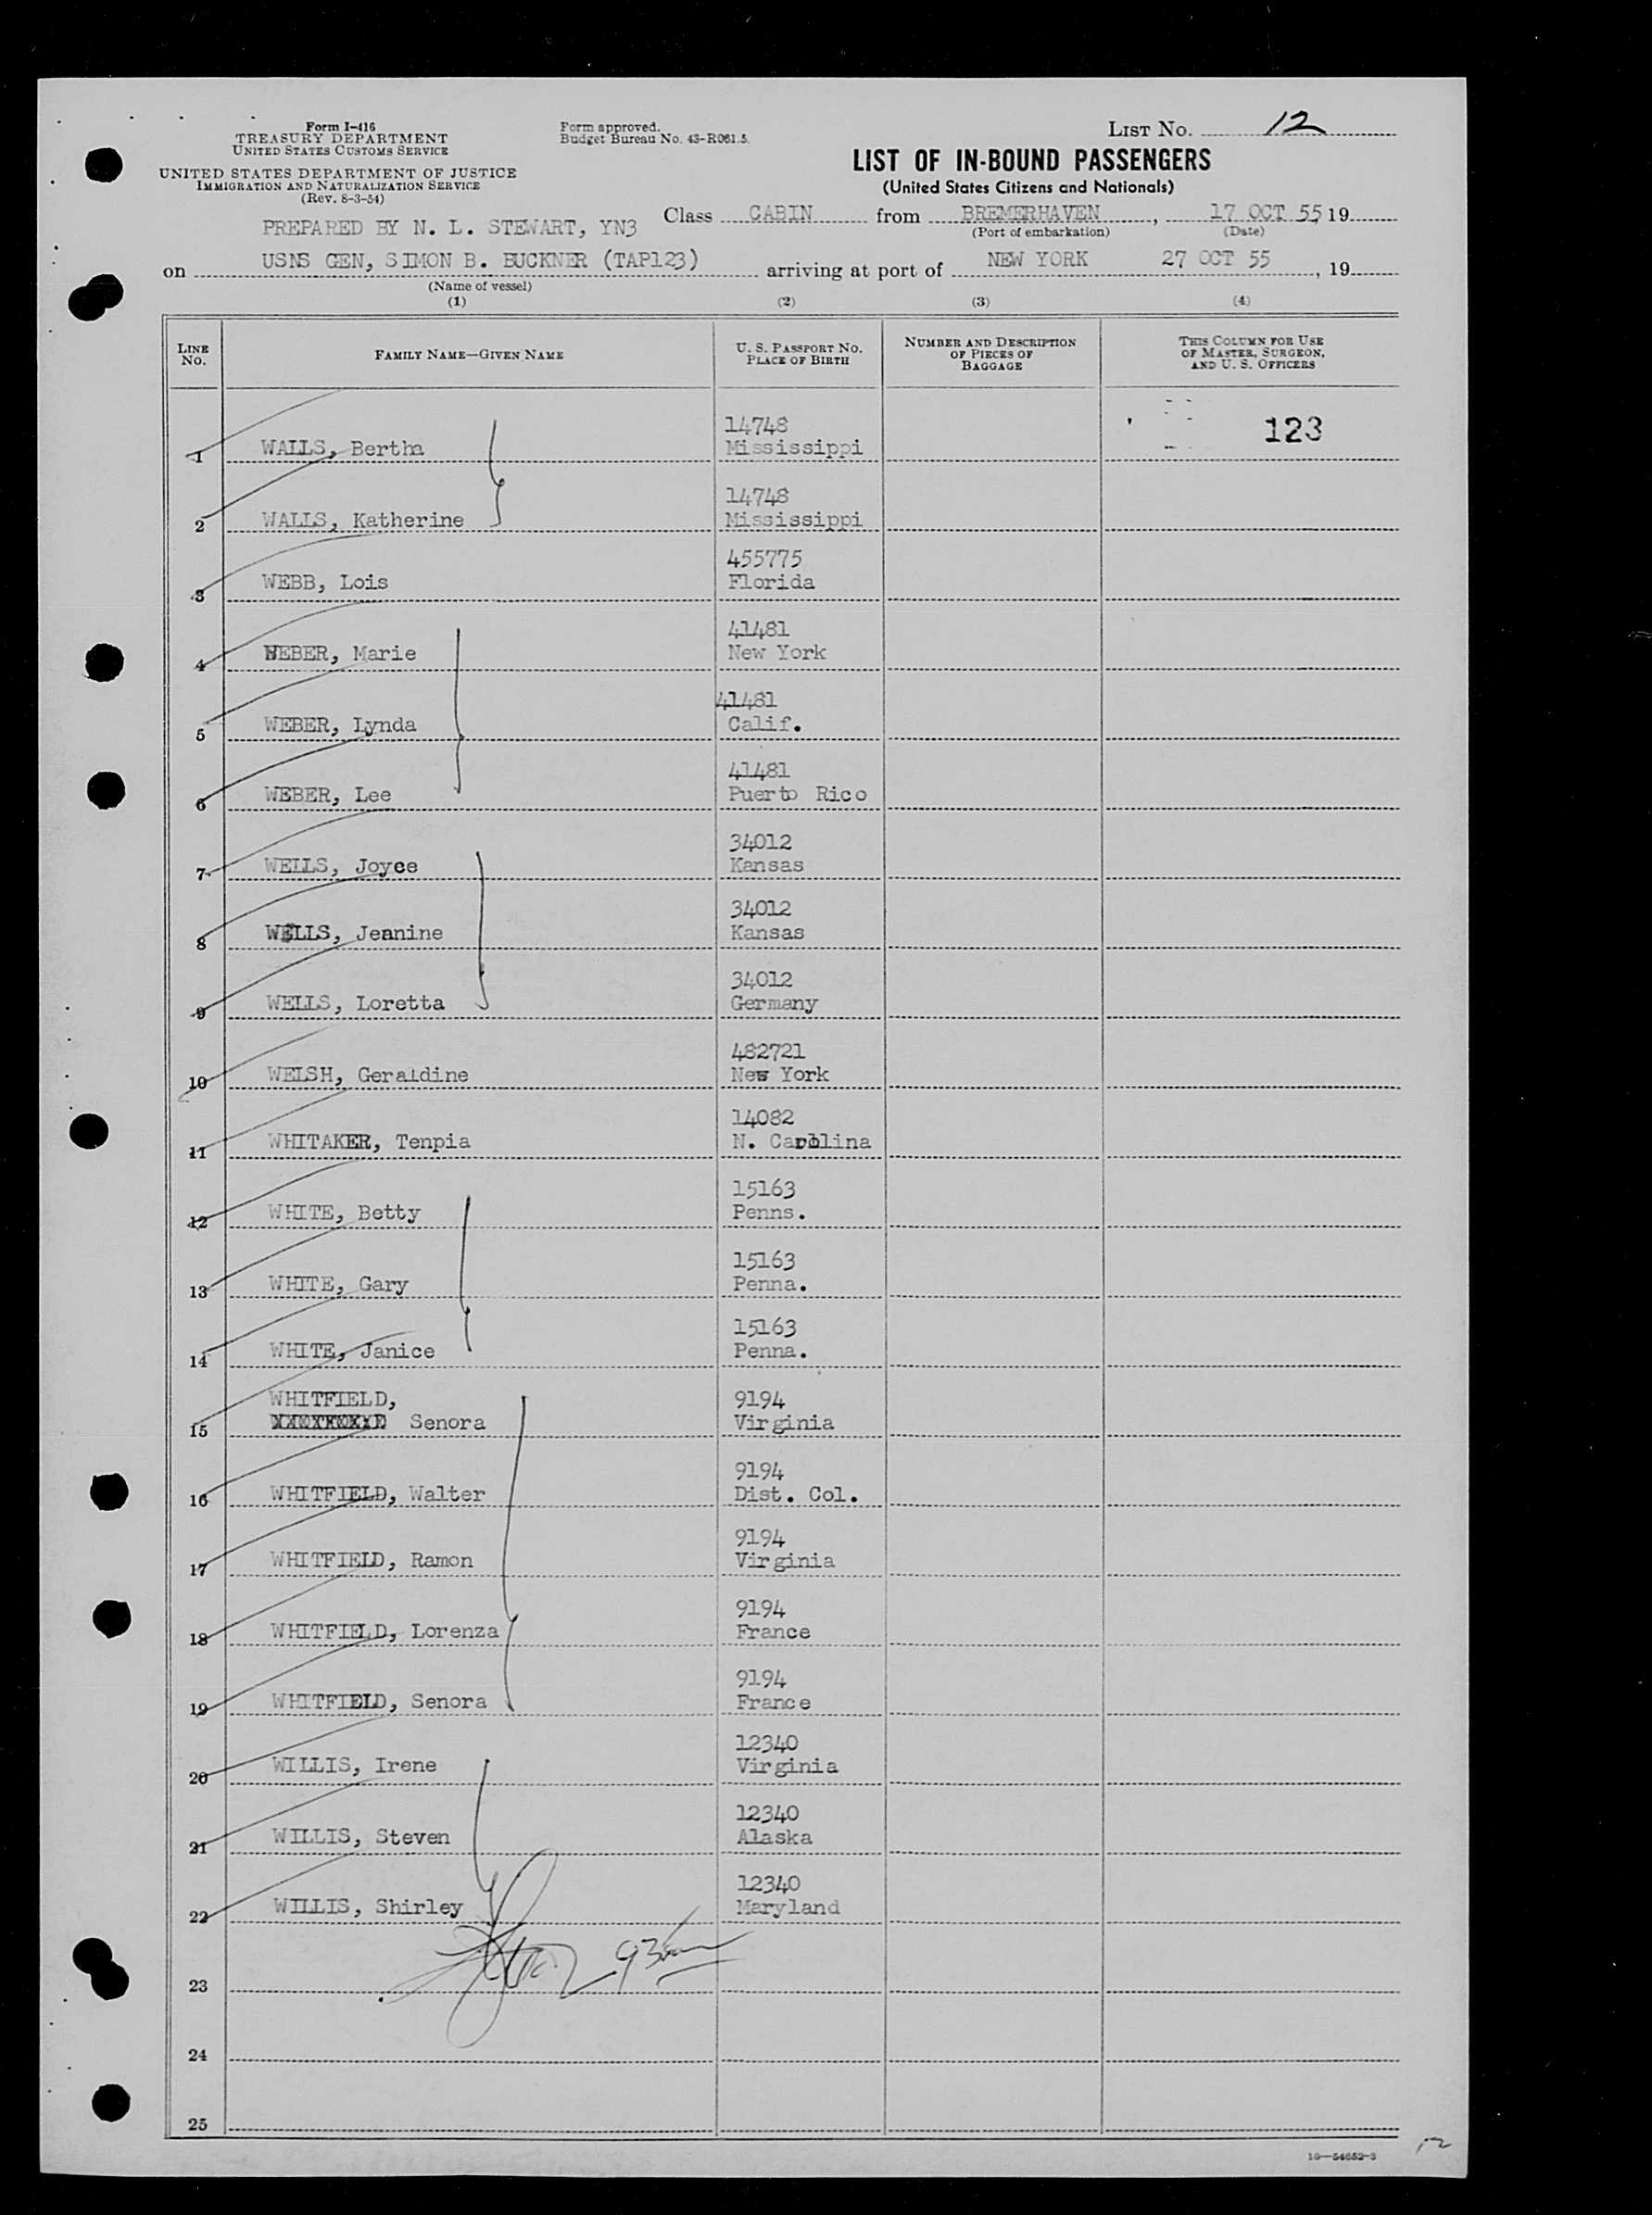 Form I-416
TREASURY DEPARTMENT
UNITED STATES CUSTOMS SERVICE
UNITED STATES DEPARTMENT OF JUSTICE
IMMIGRATION AND NATURALIZATION SERVICE
(Rev. 8-3-54)
Form approved.
Budget Bureau No. 43-R061.5.
LIST NO. 12
LIST OF IN-BOUND PASSENGERS
(United States Citizens and Nationals)
PREPARED BY N. L. STEWART, YN3
Class CABIN from BREMERHAVEN, 17 OCT 55 19
(Port of embarkation) (Date)
on USNS GEN, SIMON B. BUCKNER (TAP123) arriving at port of NEW YORK 27 OCT 55, 19
(Name of vessel)
(1) (2) (3) (4)
LINE NO. FAMILY NAME—GIVEN NAME U. S. PASSPORT NO. PLACE OF BIRTH NUMBER AND DESCRIPTION OF PIECES OF BAGGAGE THIS COLUMN FOR USE OF MASTER, SURGEON, AND U. S. OFFICERS
14748 123
1 WALLS, Bertha Mississippi
14748
2 WALLS, Katherine Mississippi
455775
3 WEBB, Lois Florida
41481
4 WEBER, Marie New York
41481
5 WEBER, Lynda Calif.
41481
6 WEBER, Lee Puerto Rico
34012
7 WELLS, Joyce Kansas
34012
8 WELLS, Jeanine Kansas
34012
9 WELLS, Loretta Germany
482721
10 WELSH, Geraldine New York
14082
11 WHITAKER, Tenpia N. Carolina
15163
12 WHITE, Betty Penns.
15163
13 WHITE, Gary Penna.
15163
14 WHITE, Janice Penna.
WHITFIELD, 9194
15 Senora Virginia
9194
16 WHITFIELD, Walter Dist. Col.
9194
17 WHITFIELD, Ramon Virginia
9194
18 WHITFIELD, Lorenza France
9194
19 WHITFIELD, Senora France
12340
20 WILLIS, Irene Virginia
12340
21 WILLIS, Steven Alaska
12340
22 WILLIS, Shirley Maryland
23
24
25
16—54652-3
12